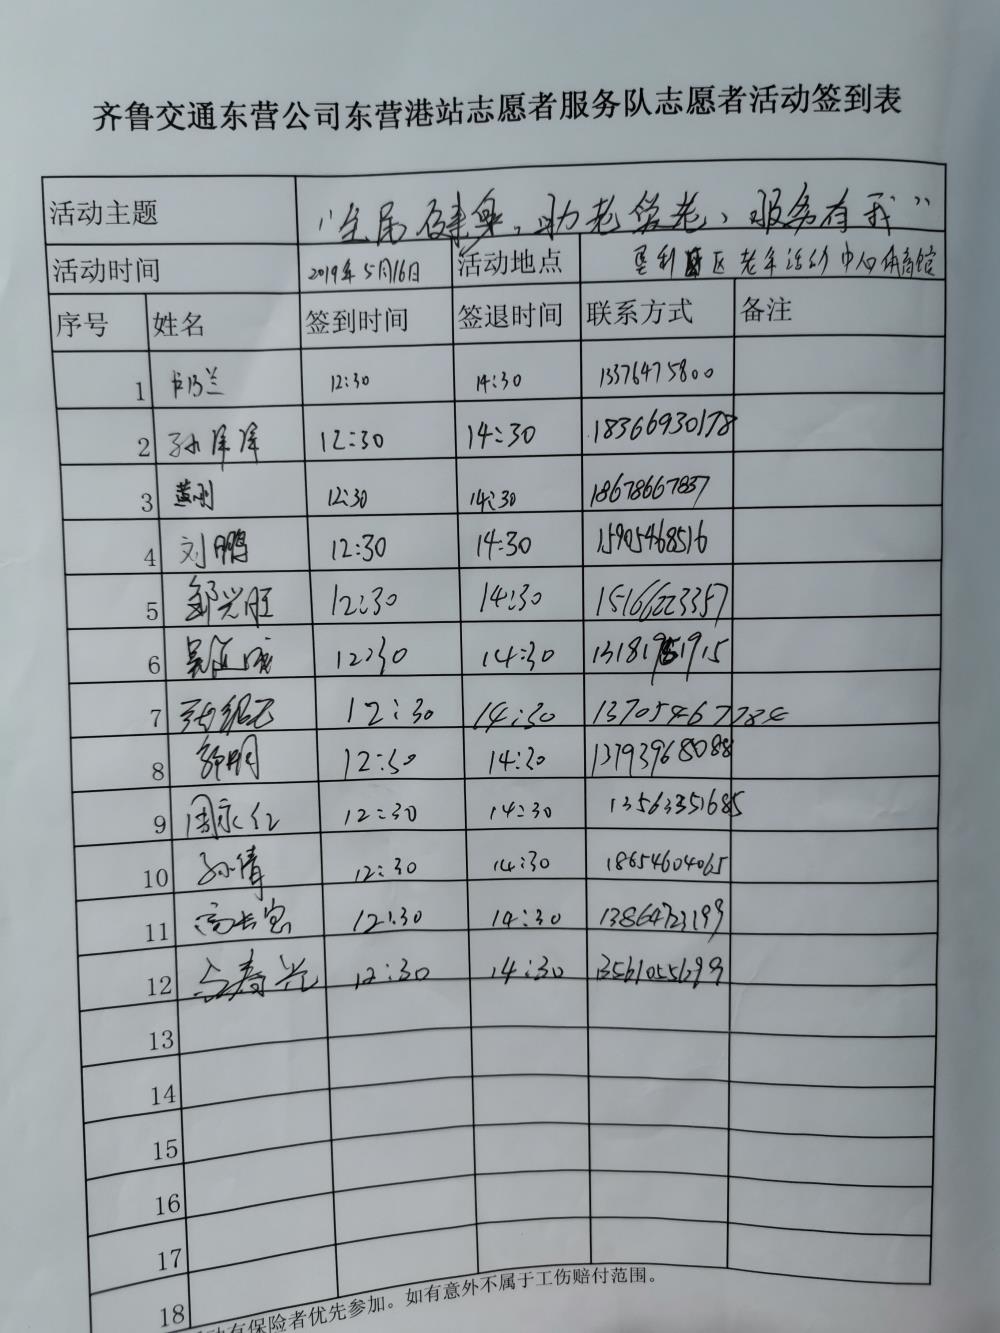 齐鲁交通东营公司东营港站志愿者服务队志愿者活动签到表
活动主题 “全民健身,助老爱老,服务有我”
活动时间 2019年5月16日 活动地点 垦利区老年活动中心体育馆
序号 姓名 签到时间 签退时间 联系方式 备注
1 12:30 14:30 13376475800
2 孙洋洋 12:30 14:30 18366930178
3 黄刚 12:30 14:30 18678667837
4 刘鹏 12:30 14:30 15905468516
5 邹兴旺 12:30 14:30 15166223357
6 12:30 14:30
7 12:30 14:30
8 12:30 14:30 13793968088
9 周永仁 12:30 14:30 13563351685
10 孙倩 12:30 14:30 18654604065
11 高长宽 12:30 14:30 13864723199
12 寿光 12:30 14:30
13
14
15
16
17
18
动有保险者优先参加。如有意外不属于工伤赔付范围。